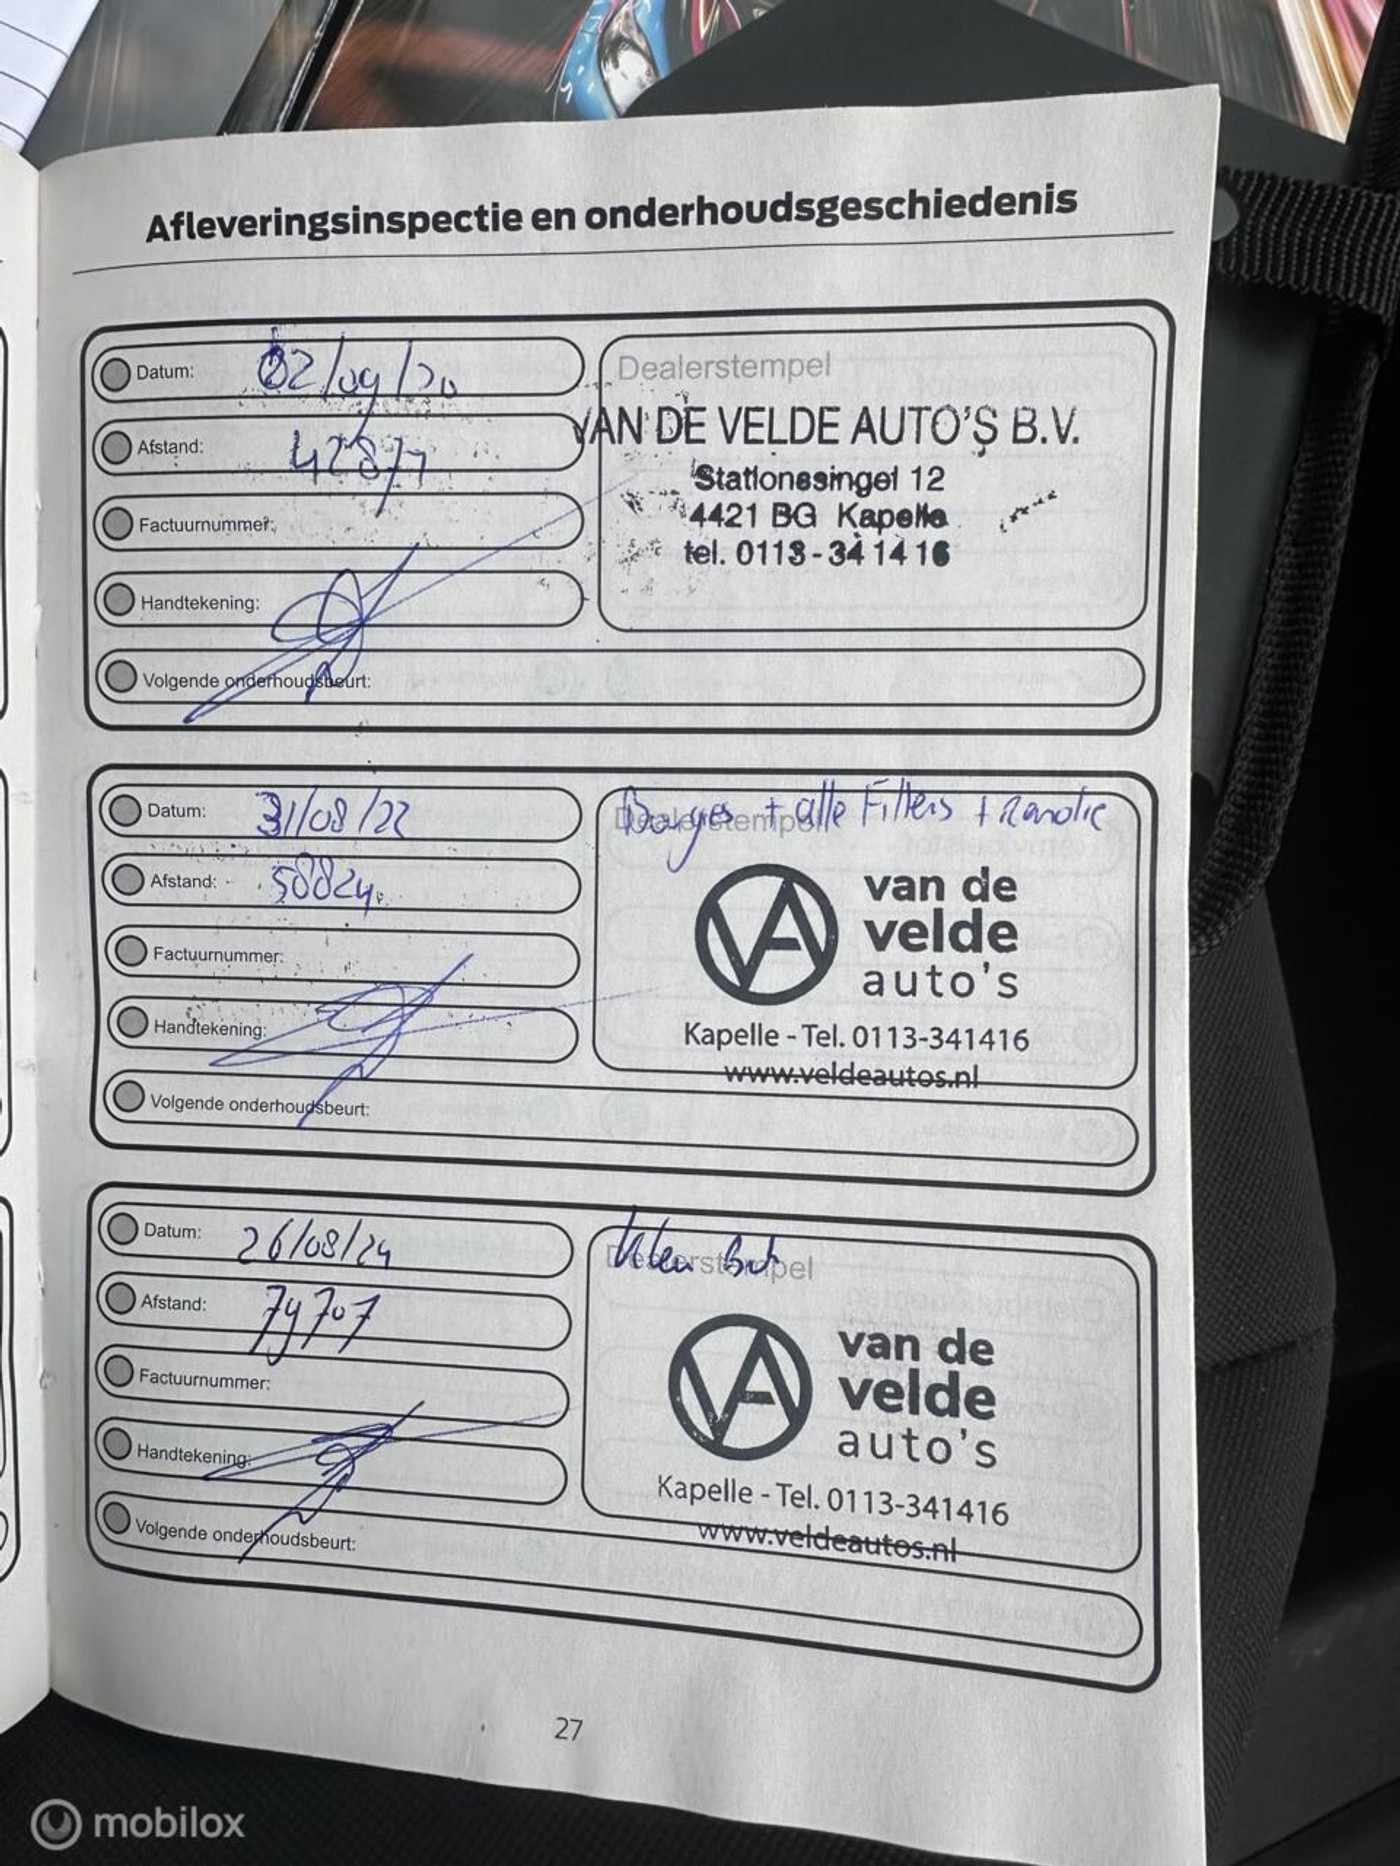 Afleveringsinspectie en onderhoudsgeschiedenis
Datum: 02/09/20
Afstand: 42877
Factuurnummer:
Handtekening:
Volgende onderhoudsbeurt:
Dealerstempel
VAN DE VELDE AUTO'S B.V.
Stationssingel 12
4421 BG Kapelle
tel. 0113-34 14 16
Datum: 31/08/22
Afstand: 58824
Factuurnummer:
Handtekening:
Volgende onderhoudsbeurt:
Dealerstempel
+ alle Filters +
VA
van de
velde
auto's
Kapelle - Tel. 0113-341416
www.veldeautos.nl
Datum: 26/08/24
Afstand: 79707
Factuurnummer:
Handtekening:
Volgende onderhoudsbeurt:
Dealerstempel
VA
van de
velde
auto's
Kapelle - Tel. 0113-341416
www.veldeautos.nl
27
mobilox